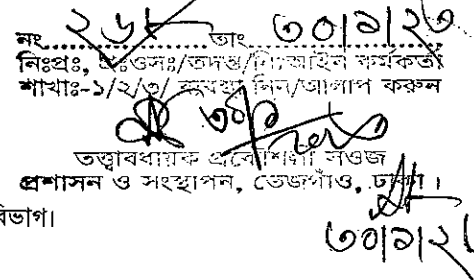 নং ২৬৮ তাং ৩০|১|২৩
নিঃপ্রঃ, প্রঃওসঃ/তদন্ত/নিঃআইন কর্মকর্তা
শাখাঃ-১/২/৩/ ব্যবস্থা নিন/আলাপ করুন
তত্ত্বাবধায়ক প্রকৌশলী সওজ
প্রশাসন ও সংস্থাপন, তেজগাঁও, ঢাকা।
বিভাগ।